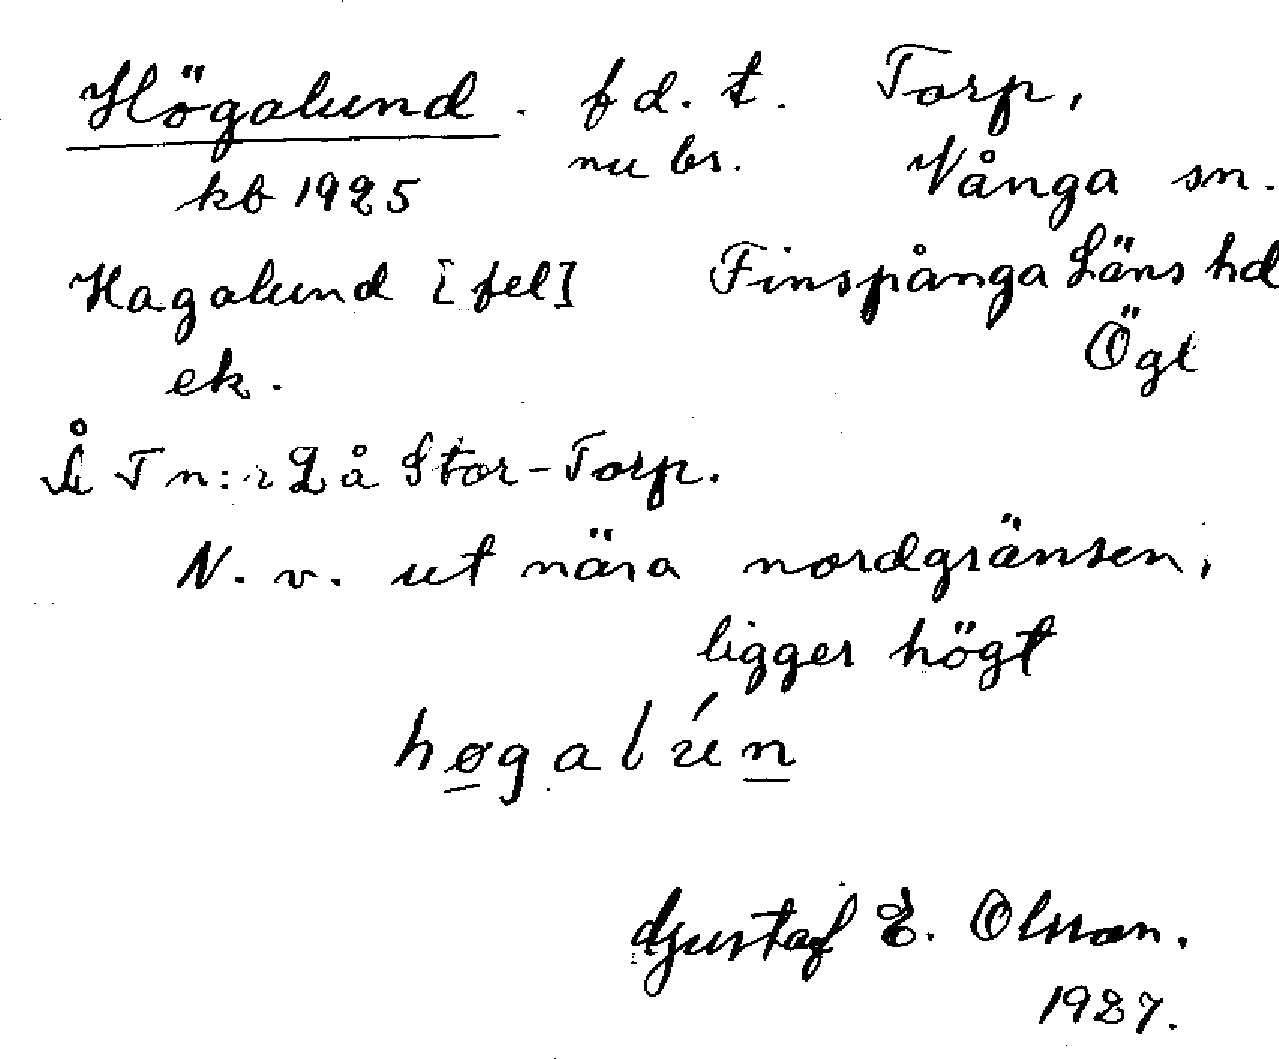 Högalund. fd. t. Torp,
nu bs. Vånga sn.
kb 1925
Hagalund [fel] Finspånga Läns hd
Ögl
ek.
Å Tn:r 2 å Stor-Torp.
N. v. ut nära nordgränsen,
ligger högt
høgalún
Gustaf E. Olsson.
1927.